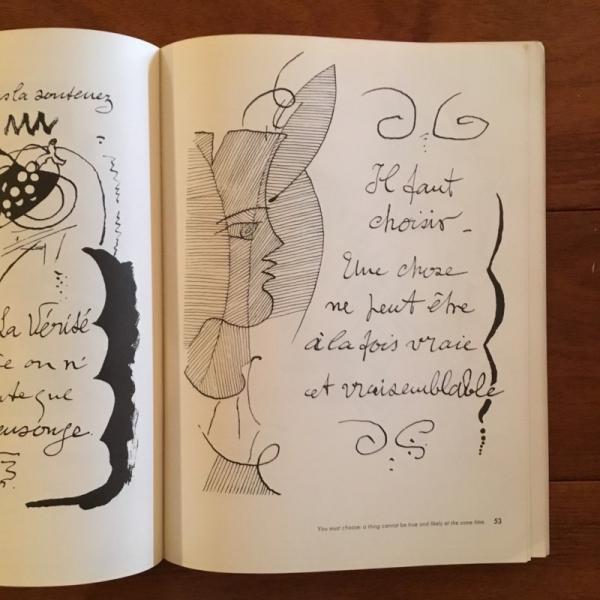 la soutenez
La Vérité
ce on n'
que
ensonge.
Il faut
choisir -
Une chose
ne peut être
à la fois vraie
et vraisemblable
You must choose: a thing cannot be true and likely at the same time. 53